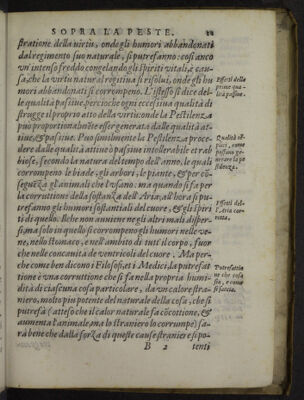 SOPRA LA PESTE.
stratione della virtù, onde gli humori abbandonati
dal regimento suo naturale, si putrefanno: così anco
vn intenso freddo congelando gli spiriti vitali, è cau-
sa, che la virtù natural rogitiua si risolui, onde gli hu
mori abbandonati si corrompeno. L'istesso si dice del-
le qualità passiue, percioche ogni eccessiua qualità di
strugge il proprio atto della virtù: onde la Pestilenza
può proportionalmẽte esser generata dalle qualità at-
tiue, & passiue. Può similmente la Pestilenza proce-
dere dalle qualità attiue ò passiue intollerabile et rab
biose, secondo la natura del tempo dell'anno, le quali
corrompeno le biade, gli arbori, le piante, & per cõ-
seguẽza gl'animali che l'vsano: ma quando si fa per
la corruttione della sostanza dell'Aria, all'hora si pu-
trefanno gli humori sostantiali del cuore, & gli spiri-
ti di quello. Ilche non auuiene ne gli altri mali disper-
si, ma solo in quelli si corrompeno gli humori nelle ve-
ne, nello stomaco, e nell'ambito di tutt'il corpo, fuor
che nelle concauità de ventricoli del cuore. Ma per-
che come ben dicono i Filosofi, et i Medici, la putrefat
tione è vna corruttione che si fa nella propria humi-
dità di ciascuna cosa particolare, da vn calore stra-
niero, molto più potente del naturale della cosa, che si
putrefà (atteso che il calor naturale fa cõcottione, &
aumenta l'animale, ma lo straniero lo corrumpe) sa-
rà bene che dalla forza di queste cause straniere si po-
B 2 tenti
Effetti delle
prime qua-
lità passiue.
Qualità at-
passono ge-
nerare la pe
stilenza.
Effetti del-
l'Aria cor-
rotta.
Putrefattio
ne che cosa
sia, e come
si faccia.